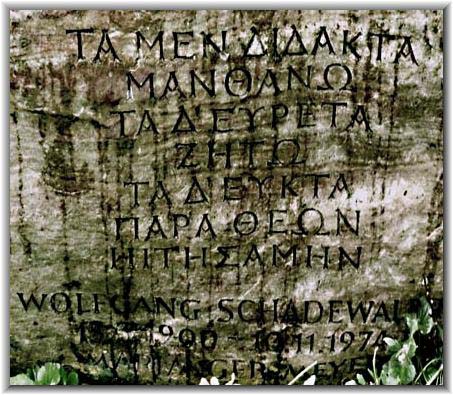 ΤΑ ΜΕΝ ΔΙΔΑΚΤΑ
ΜΑΝΘΑΝΩ
ΤΑ Δ ΕΥΡΕΤΑ
ΖΗΤΩ
ΤΑ Δ ΕΥΚΤΑ
ΠΑΡΑ ΘΕΩΝ
ΗΙΤΗΣΑΜΗΝ
WOLFGANG SCHADEWALDT
1900 - 10.11.1974